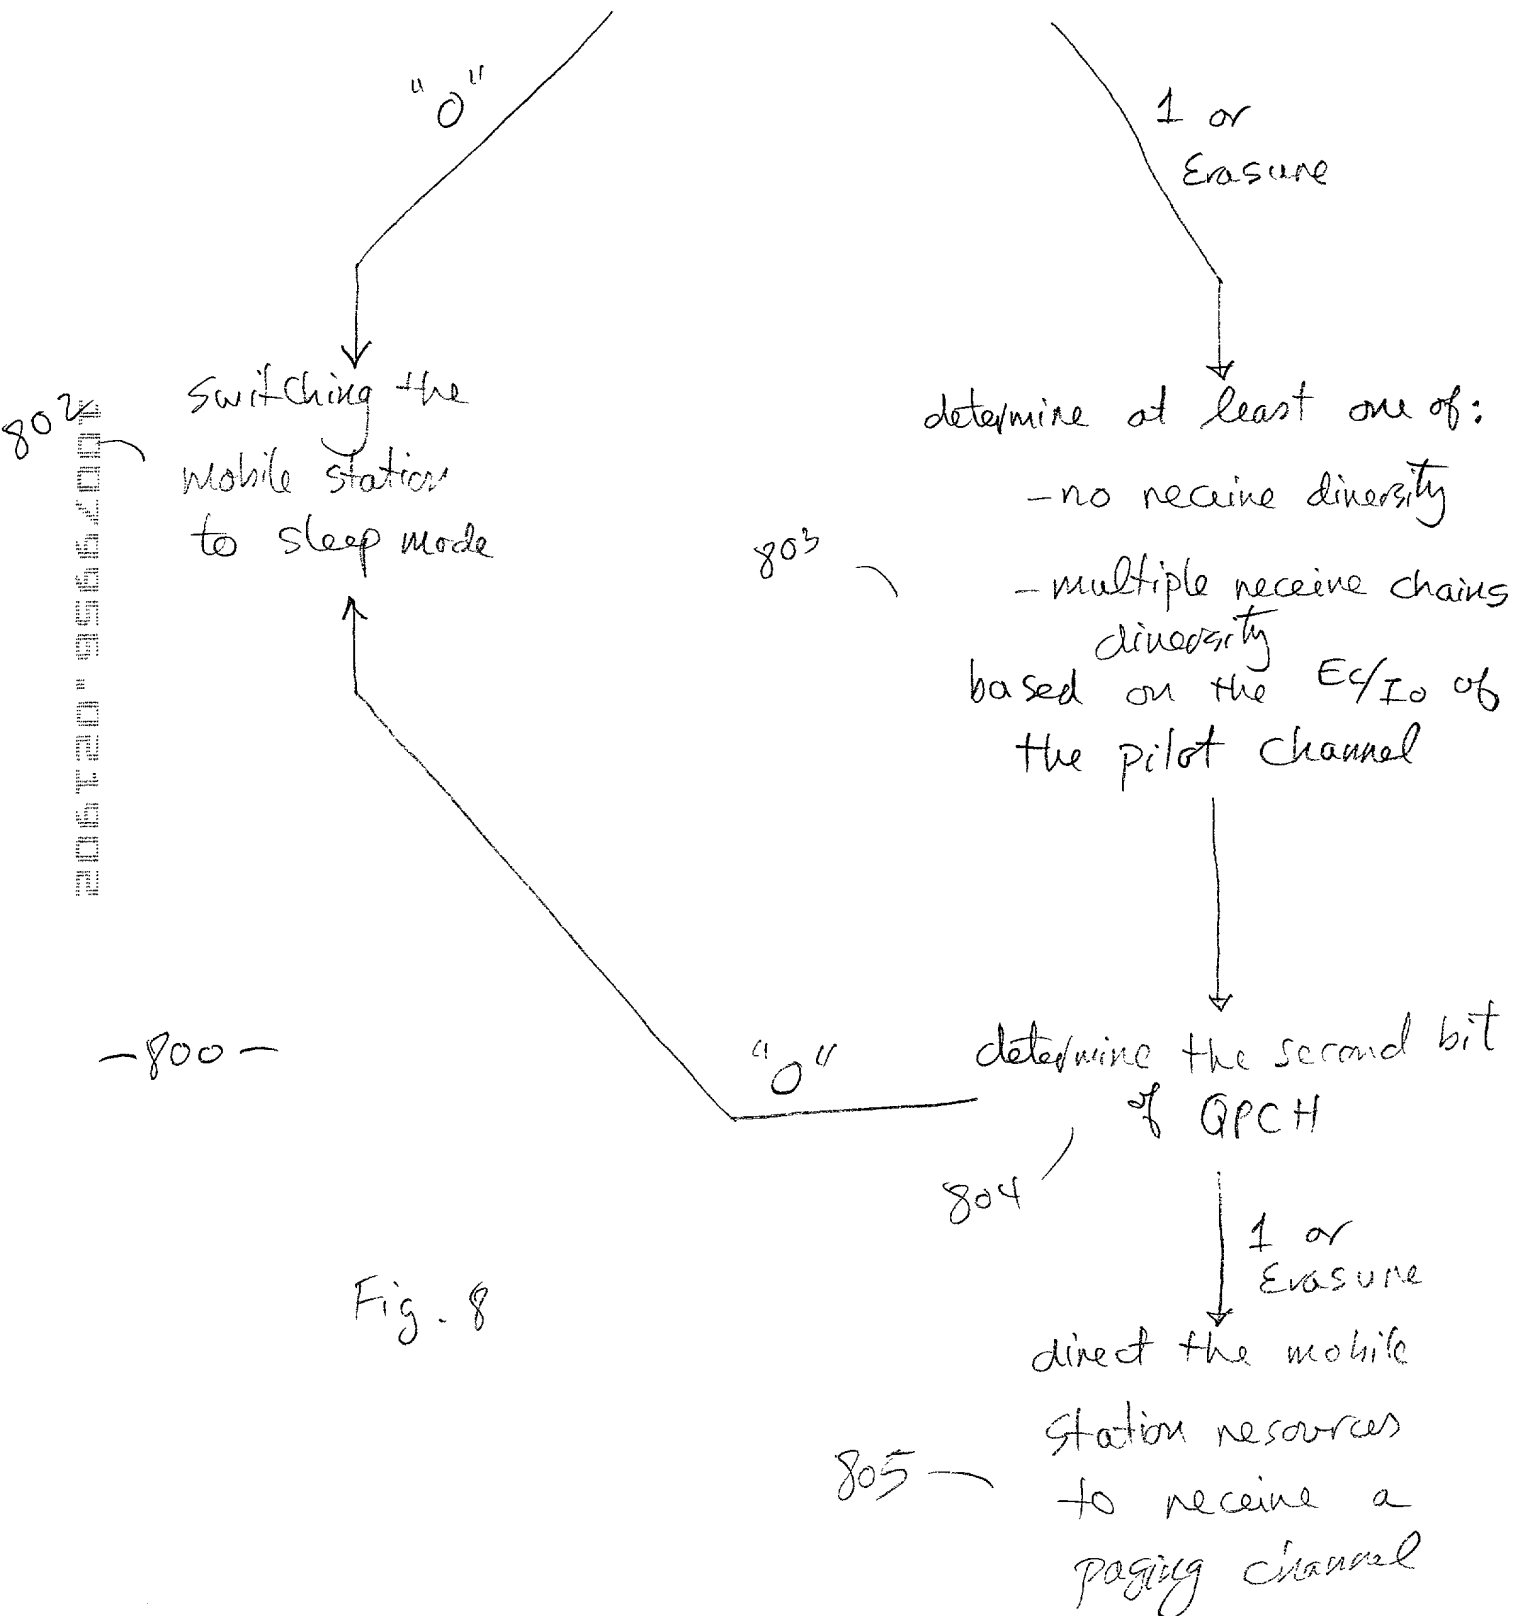 "0"
1 or
Erasure
802
switching the
mobile station
to sleep mode
determine at least one of:
- no receive diversity
803
- multiple receive chains
diversity
based on the Ec/Io of
the pilot channel
- 800 -
"0"
determine the second bit
of QPCH
804
1 or
Erasure
Fig. 8
direct the mobile
station resources
805
to receive a
paging channel